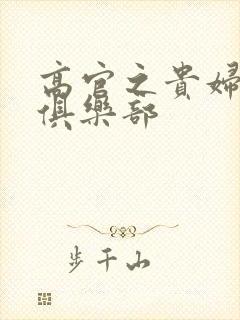 高官之貴婦
俱樂部
步千山